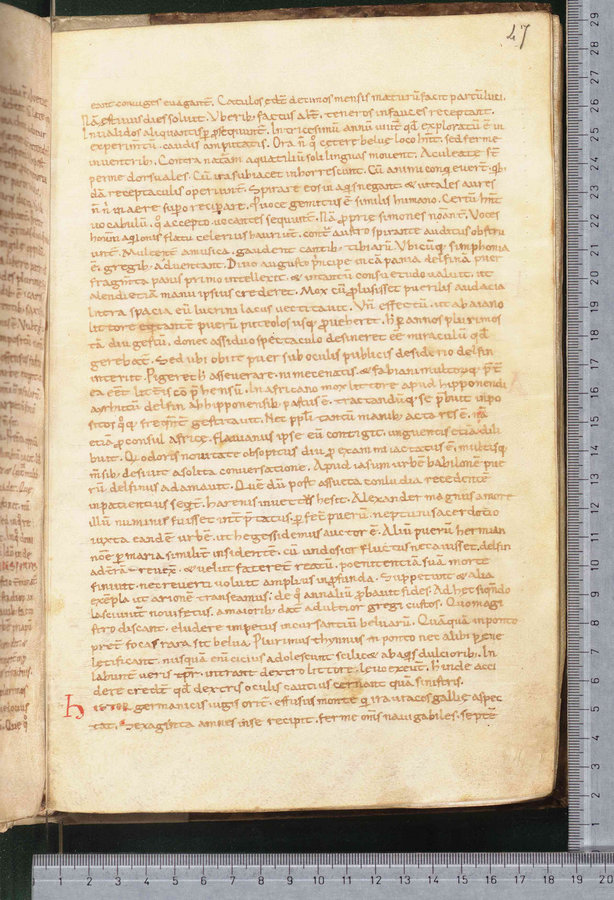 47
eant coniuges euagant̄. Catulos edt̄ decimos mensis maturū facit partū luci.
Nā estiuus dies soluit. Uberib; fœtus alt̄. teneros in fauces receptant.
Inualidos aliquantisp̱ p̱sequunt̄. In tricesimū annū uiut̄ qđ exploratū ē in
experimtū. caudis amputatis. Ora n̄ q̊ cetere belue loco hn̄t. sed ferme
in uentrib;. Contra natam aquatiliū soli linguas mouent. Aculeate st̄
perme dorsuales. Cū ira subiacet inhorrescunt. Cū animi conq̇euerī. q̇b;
dā receptaculis operiunt̄. Spirare eos in aq̇s negant. & uitales auras
n̄ n̄ in aere sup̱o recipare. P uoce gemitus ē similis humano. Certū hn̄t
uocabulū. q̊ accepto uocantes sequunt̄. Nā p̱prie simones noānt̄. Voces
homīnū aq̇lonis flatu celerius hauriunt. cont̄ austro spirante auditus obstru
unt̄. Mulcent̄ a musica. gaudent cantib; tibiarū. Ubicūq; simphonia
ē. gregib; aduentant. Diuo augusto p̄ncipe incā pania delfinū puer
fragmta panis primo intellexit. & intantū consuetudo ualuit. ut
alendū etiā manu ipsius crederet. Mox cū p̱lusisset puerilis audacia
intra spacia eū lucrini lacus uectitauit. Unī effectū. ut a baiano
littore equitantē puerū puteolos usq; p̱ueherit. H p̱ annos plurimos
tā diu gestū. donec assiduo spectaculo desineret eē miraculū qđ
gerebat̄. Sed ubi obiit puer sub oculis publicis desiderio delfin
interiit. Pigeret h̄ asseuerare. ni mecenatis. & fabiani multorq; p̄t̄
ea eēt litt̄is cōp̄hensū. In africano mox littore apud hipponem
diarhitū delfin̄ ab hipponensib; pastus ē. tractandūq; se p̄buit inpo
sitos q̊q; freqnt̄ gestitauit. Nec ppl̄i tantū manib; acta res ē. nā
etiā p̱consul africę. flauianus ipse eū contigit. unguentis etiā dili
buit. Q̇ odoris nouitate obsopitus diu p̱ exanimi iactatus ē. multisq;
m̄sib; desiuit a solita conuersatione. Apud iasum urbē babilonē pue
rū delfinus adamauit. Quē dū post assueta conludia recedentē
inpatientius seqt̄. harenis inuect̄s hesit. Alexander magnus amorē
illū numinis fuisset int̄p̄tatus. p̱ fect̄ puerū. neptuni sacerdotio
iuxta eandē urbē. ut hegessidemus auctor ē. Aliū puerū hermian
nōē p̱ maria similit̄ insidentē. cū undosior fluctus necauisset. delfin
ad terrā reuex̄. & uelut fateret̄ reatū. poenitentiā sua morte
finiuit. nec reuerti uoluit amplius in p̱funda. Suppetunt & alia
exēpla. ut arionē transeamus. de q̊ annaliū p̱bauit fides. Adhec siqn̄do
lasciuiunt noui fetus. a maiorib; dat̄ adultior gregi custos. Quo magi
stro discant. eludere impetus incursantiū beluarū. Quāquā in ponto
p̄t̄ focas rara sit belua. Plurimus thynnus in ponto nec alibi pene
letificant̄. nusquā enī cicius adolescunt scilic& ob aq̇s dulciorib;. In
labunt̄ ueris tp̄r. intrant dextro littore. leuo exeunt. Hinc de acci
dere credit̄. qđ dextris oculis cautius cernant quā sinistris.
Hister. germanicis iugis orit̄. effusus monte q̇ rauracos gallię aspec
tat. Sexaginta amnes in se recipit. ferme om̄s nauigabiles. septē